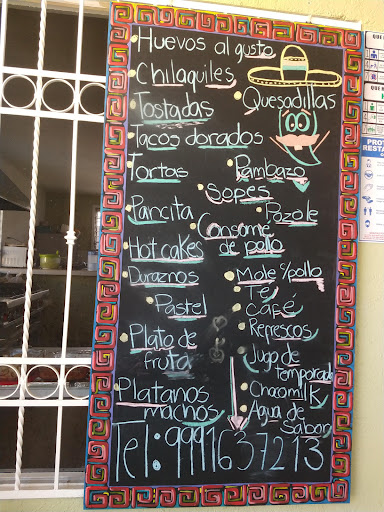 Huevos al gusto
Chilaquiles
Tostadas
Quesadillas
Tacos dorados
Tortas
Pambazo
Sopes
Pancita
Pozole
Consome de pollo
Hot cakes
Duraznos
Mole c/pollo
Té
Pastel
Café
Refrescos
Plato de
fruta
Jugo de
temporada
Platanos
machos
Chocomilk
Agua de
Sabor
Tel: 9991637213